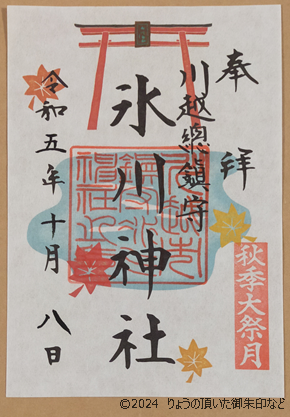 奉拝
川越總鎮守
氷川神社
令和五年十月八日
秋季大祭月
©2024 りょうの頂いた御朱印など